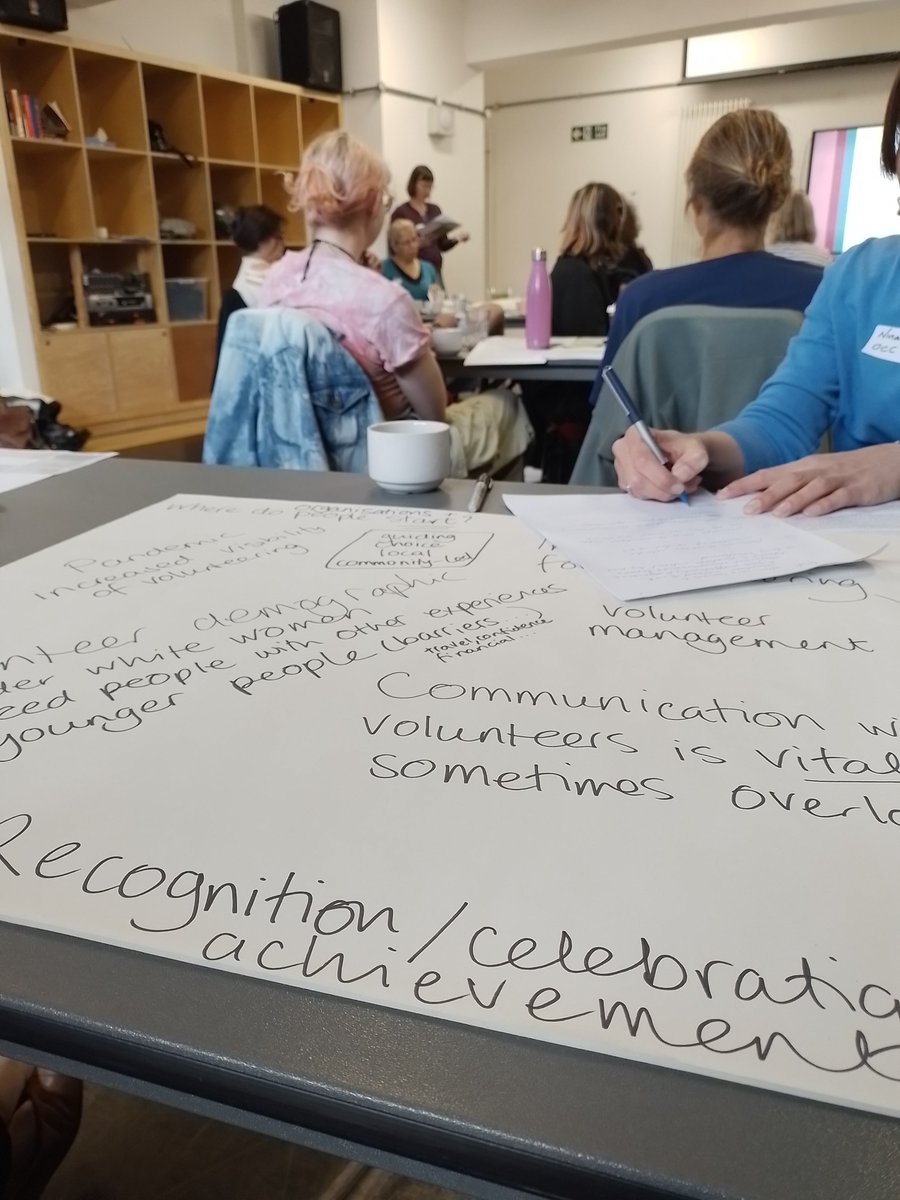 organisations +
where do people start?
Pandemic
increased visibility
of volunteering
guiding
choice
local
community-led
nteer demographic
der white women
eed people with other experiences
younger people (barriers
travel confidence
financial...
volunteer
management
Communication wi
volunteers is vital
sometimes overlo
Recognition/celebratio
achievement
OCC